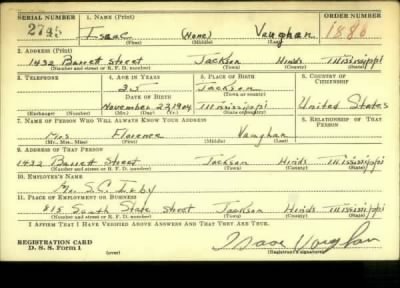 SERIAL NUMBER 1. NAME (Print) ORDER NUMBER
2745 Isaac (None) Vaughan 1880
(First) (Middle) (Last)
2. ADDRESS (Print)
1432 Barrett Street Jackson Hinds Mississippi
(Number and street or R. F. D. number) (Town) (County) (State)
3. TELEPHONE 4. AGE IN YEARS 5. PLACE OF BIRTH 6. COUNTRY OF CITIZENSHIP
35 Jackson
DATE OF BIRTH (Town or county)
November 27, 1904 Mississippi United States
(Exchange) (Number) (Mo.) (Day) (Yr.) (State or country)
7. NAME OF PERSON WHO WILL ALWAYS KNOW YOUR ADDRESS 8. RELATIONSHIP OF THAT PERSON
Mrs Florence Vaughan
(Mr., Mrs., Miss) (First) (Middle) (Last)
9. ADDRESS OF THAT PERSON
1432 Barrett Street Jackson Hinds Mississippi
(Number and street or R. F. D. number) (Town) (County) (State)
10. EMPLOYER'S NAME
Mr. S. C. Irby
11. PLACE OF EMPLOYMENT OR BUSINESS
815 South State Street Jackson Hinds Mississippi
(Number and street or R. F. D. number) (Town) (County) (State)
I AFFIRM THAT I HAVE VERIFIED ABOVE ANSWERS AND THAT THEY ARE TRUE.
REGISTRATION CARD
D. S. S. Form 1 (over) Isaac Vaughan
(Registrant's signature)